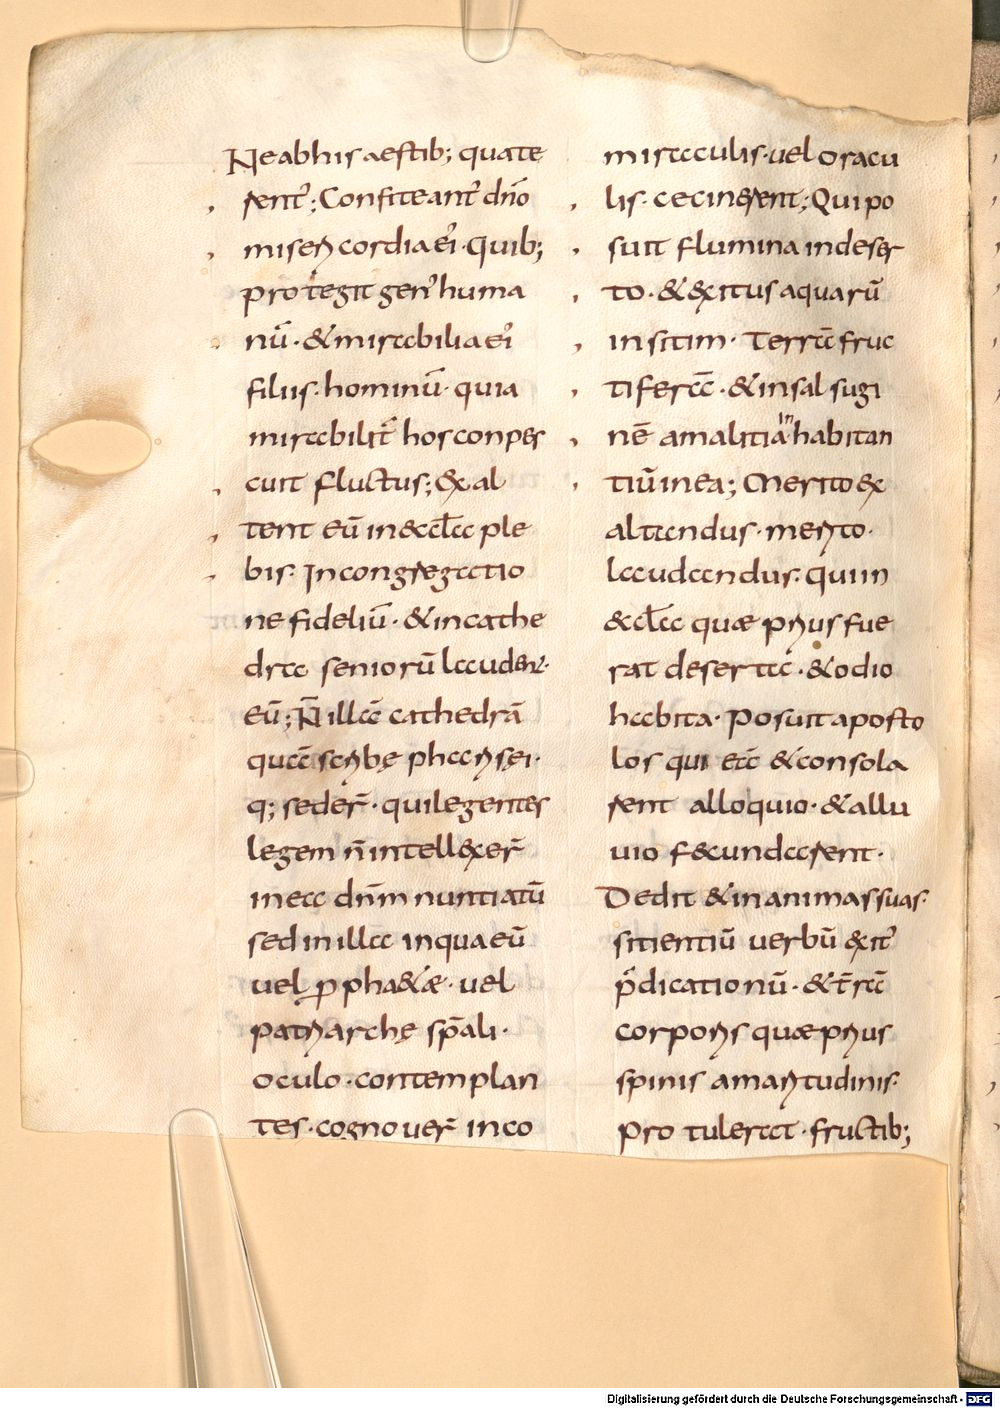 Ne ab his aestib; quate
rent᷒; Confiteant᷒ dño
misericordia ei᷒. quib;
protegit gen᷒ huma
nū. & mirabilia ei᷒
filiis. hominū. quia
mirabilit᷒ hos conper
cuit fluctus; & xal
tent eū in &ccl̄a ple
bis. In congregatio
ne fideliū. & in cathe
dra seniorū lauder᷒.
eū; N̄ illā cathedrā
quā scribę pharisęi.
q; seder̄. qui legentes
legem n̄ intell&xer̄
in ea dn̄m nuntiatū
sed in illa in qua eū
vel ꝓpha&ae. vel
patriarchę sp̄ali.
oculo. contemplan
tes. cognover̄ in eo
miraculis. vel oracu
lis. cecinerent; Qui po
suit flumina in deser
to. & &xitus aquarū
in sitim. Terrā fruc
tiferā. & in salsugi
nē a malitia in habitan
tiū in ea; Merito &x
altandus. merito.
laudandus. Qui in
&ccl̄a quae prius fue
rat deserta. & odio
habita. Posuit aposto
los qui eā & consola
rent alloquio. & allu
vio f&cundarent.
Dedit & in animas suas.
sitientiū verbū &xit᷒
p̄dicationū. & t̄rā
corporis quae prius
spinis amaritudinis.
protulerat. fructib;
Digitalisierung gefördert durch die Deutsche Forschungsgemeinschaft - DFG